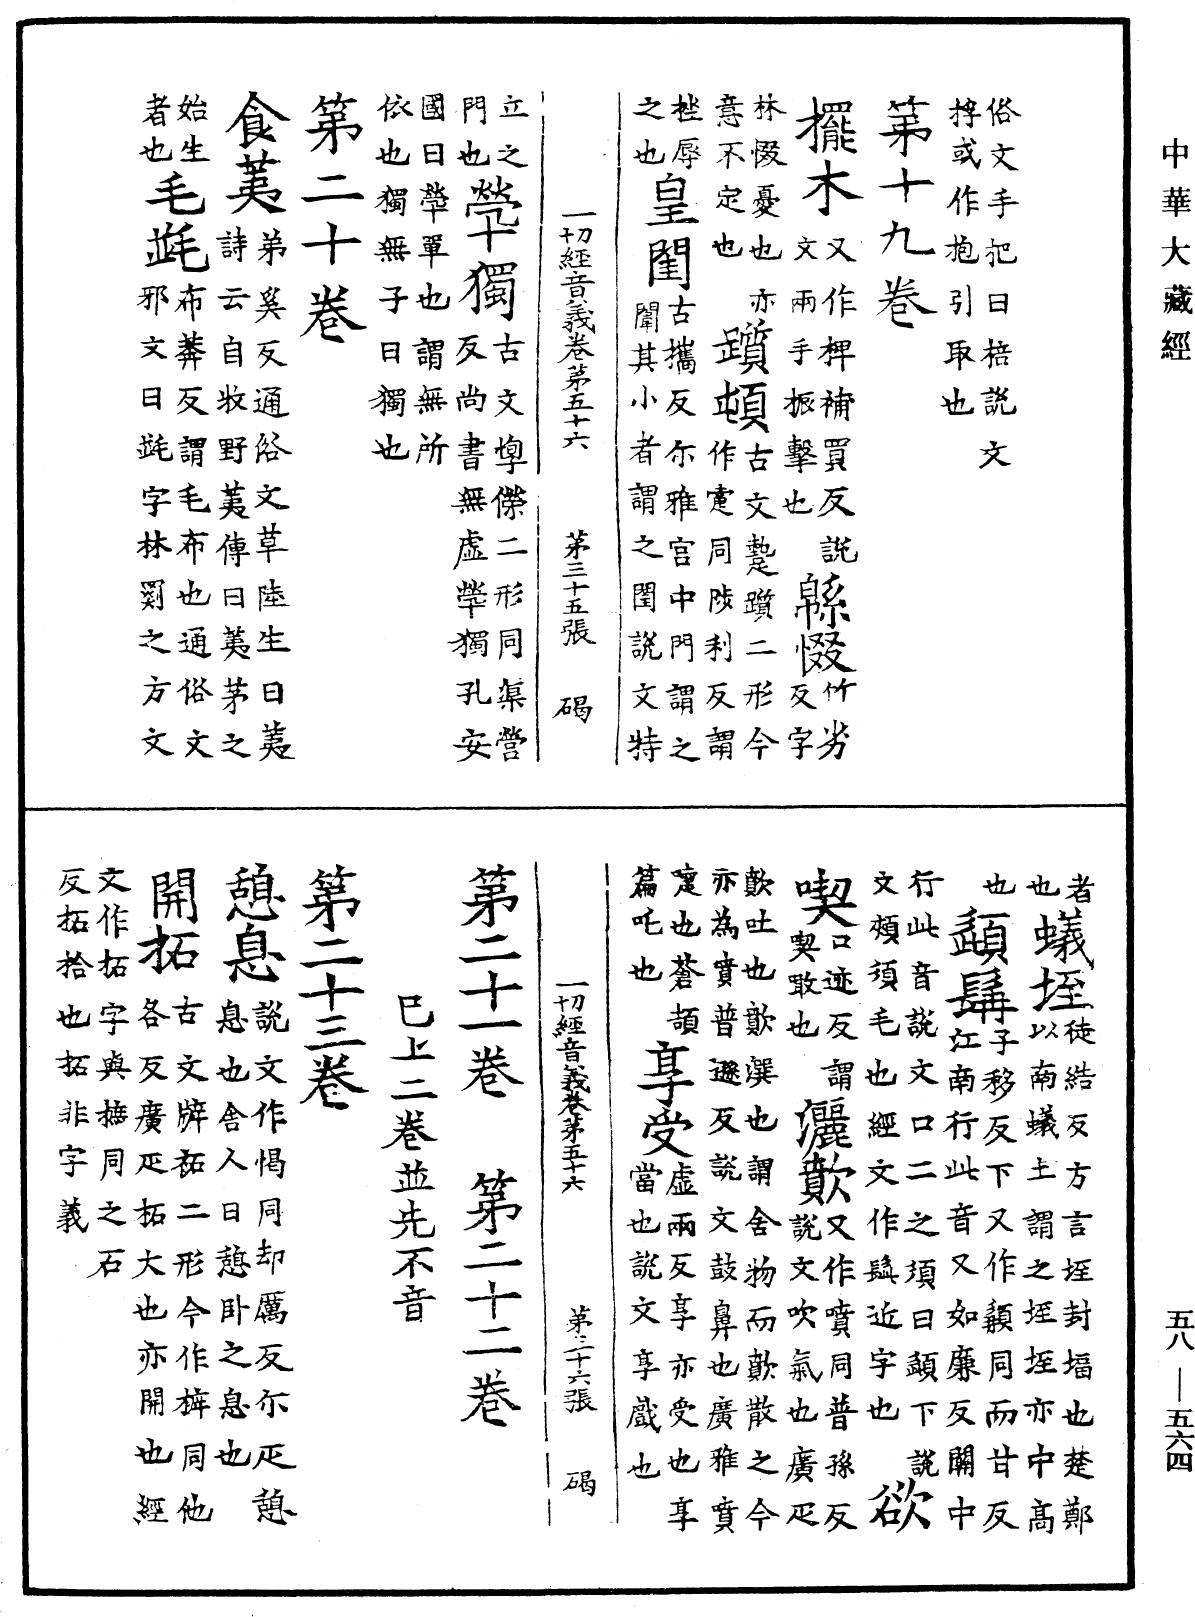 中華大藏經
俗文手把曰掊說文
捊或作抱引取也
第十九卷
擺木又作椑補買反說
文兩手振擊也緜惙竹劣
反字
林惙憂也亦
意不定也躓頓古文𧽊躓二形今
作疐同陟利反謂
挫辱
之也皇閨古攜反尒雅宮中門謂之
闈其小者謂之閨說文特
一切經音義卷第五十六　第三十五張　碣
立之
門也煢獨古文惸傑二形同渠營
反尚書無虛煢獨孔安
國曰煢單也謂無所
依也獨無子曰獨也
第二十卷
食荑弟奚反通俗文草陸生曰荑
詩云自牧野荑傳曰荑茅之
始生
者也毛毾布莽反謂毛布也通俗文
邪文曰毾字林罽之方文
者
也蟻垤徒結反方言垤封塲也楚鄭
以南蟻土謂之垤垤亦中高
也䫇髯子移反下又作䫇同而甘反
江南行此音又如廉反關中
行此音說文口二之須曰䫇下說
文頰須毛也經文作髭近字也欲
喫口迹反謂
喫敢也灑歕又作噴同普孫反
說文吹氣也廣疋
歕吐也歕潠也謂含物而歕散之今
亦為賁普遜反說文鼓鼻也廣雅賁
嚏也蒼頡
篇吒也享受虛兩反享亦受也享
當也說文享戲也
一切經音義卷第五十六　第三十六張　碣
第二十一卷　第二十二卷
巳上二卷並先不音
第二十三卷
憩息說文作愒同却厲反尒疋憩
息也舍人曰憩卧之息也
開拓古文㡯袥二形今作㭕同他
各反廣疋拓大也亦開也經
文作拓字與摭同之石
反拓拾也拓非字義
五八—五六四